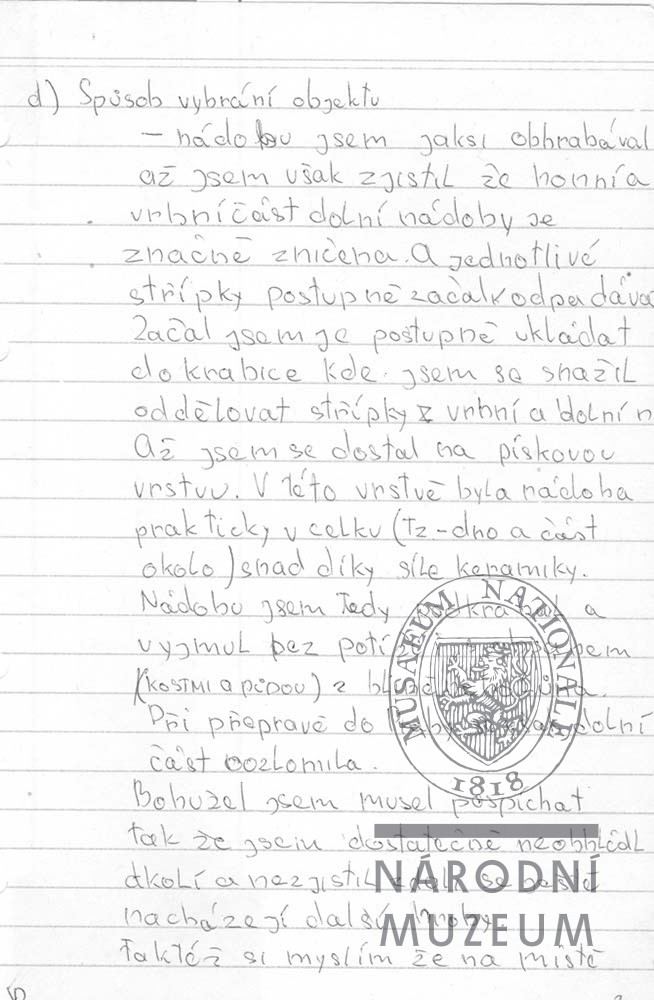 d) Spůsob vybrání objektu
– nádobu jsem jaksi obhrabával
až jsem však zjistil že horní a
vrhní část dolní nádoby je
značně zničena. A jednotlivé
střípky postupně začalk odpadáva
Začal jsem je postupně ukládat
do krabice kde jsem se snažil
oddělovat střípky z vrhní a dolní n
Až jsem se dostal na pískovou
vrstvu. V této vrstvě byla nádoba
prakticky v celku (Tz-dno a část
okolo) snad díky síle keramiky.
Nádobu jsem tedy a
vyjmul bez
(KOSTMI a PŮDOU) z
Při přepravě do dolní
část rozlomila.
Bohužel jsem musel pospíchat
tak že jsem dostatečně neobhlédl
okolí a nezjistil zdali se ještě
nacházejí další hroby.
Taktéž si myslím že na místě
MUSAEUM NATIONALE
1818
NÁRODNÍ
MUZEUM